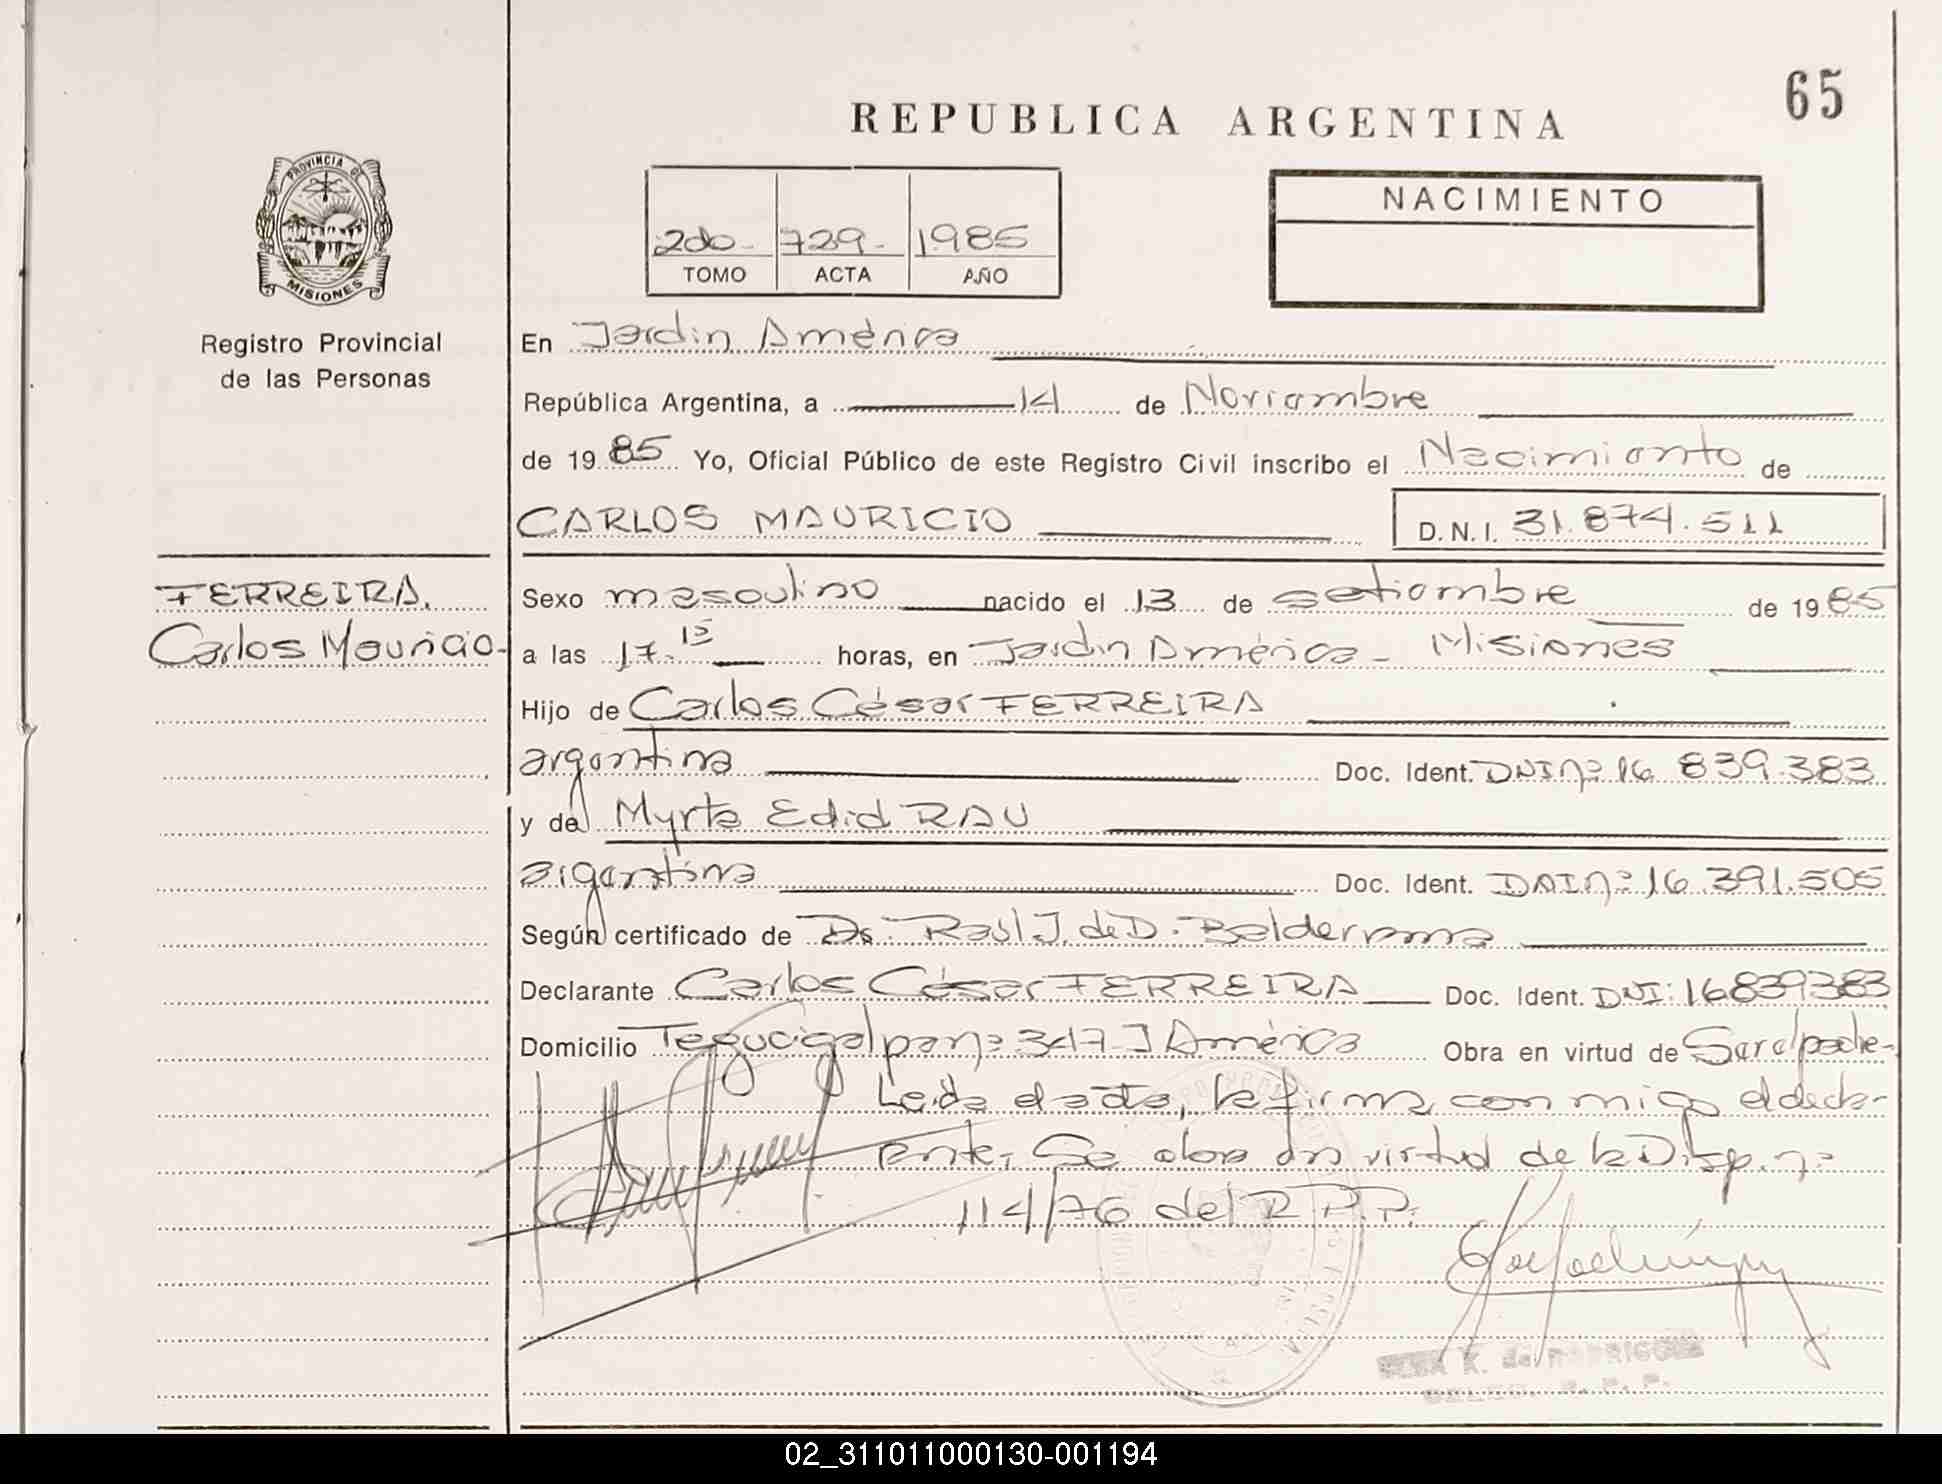 65
REPUBLICA ARGENTINA
PROVINCIA DE
MISIONES
Registro Provincial
de las Personas
2do - 729 - 1985
TOMO ACTA AÑO
NACIMIENTO
En Jardín América
República Argentina, a 14 de Noviembre
de 19 85 Yo, Oficial Público de este Registro Civil inscribo el Nacimiento de
CARLOS MAURICIO D.N.I. 31.874.511
FERREIRA,
Carlos Mauricio-
Sexo masculino nacido el 13 de setiembre de 19 85
a las 17.15 horas, en Jardín América - Misiones
Hijo de Carlos César FERREIRA
argentina Doc. Ident. DNI nº 16 839.383
y de Myrta Edid RAU
argentina Doc. Ident. DNI nº 16.391.505
Según certificado de Dr. Raul J. de D. Balderrama
Declarante Carlos César FERREIRA Doc. Ident. DNI: 16839383
Domicilio Tegucigalpa nº 347 J América Obra en virtud de Ser el padre-
Leida el acta, la firma conmigo el decla-
rante. Se obra en virtud de la Disp. nº
114/76 del R.P.P.
02_311011000130-001194